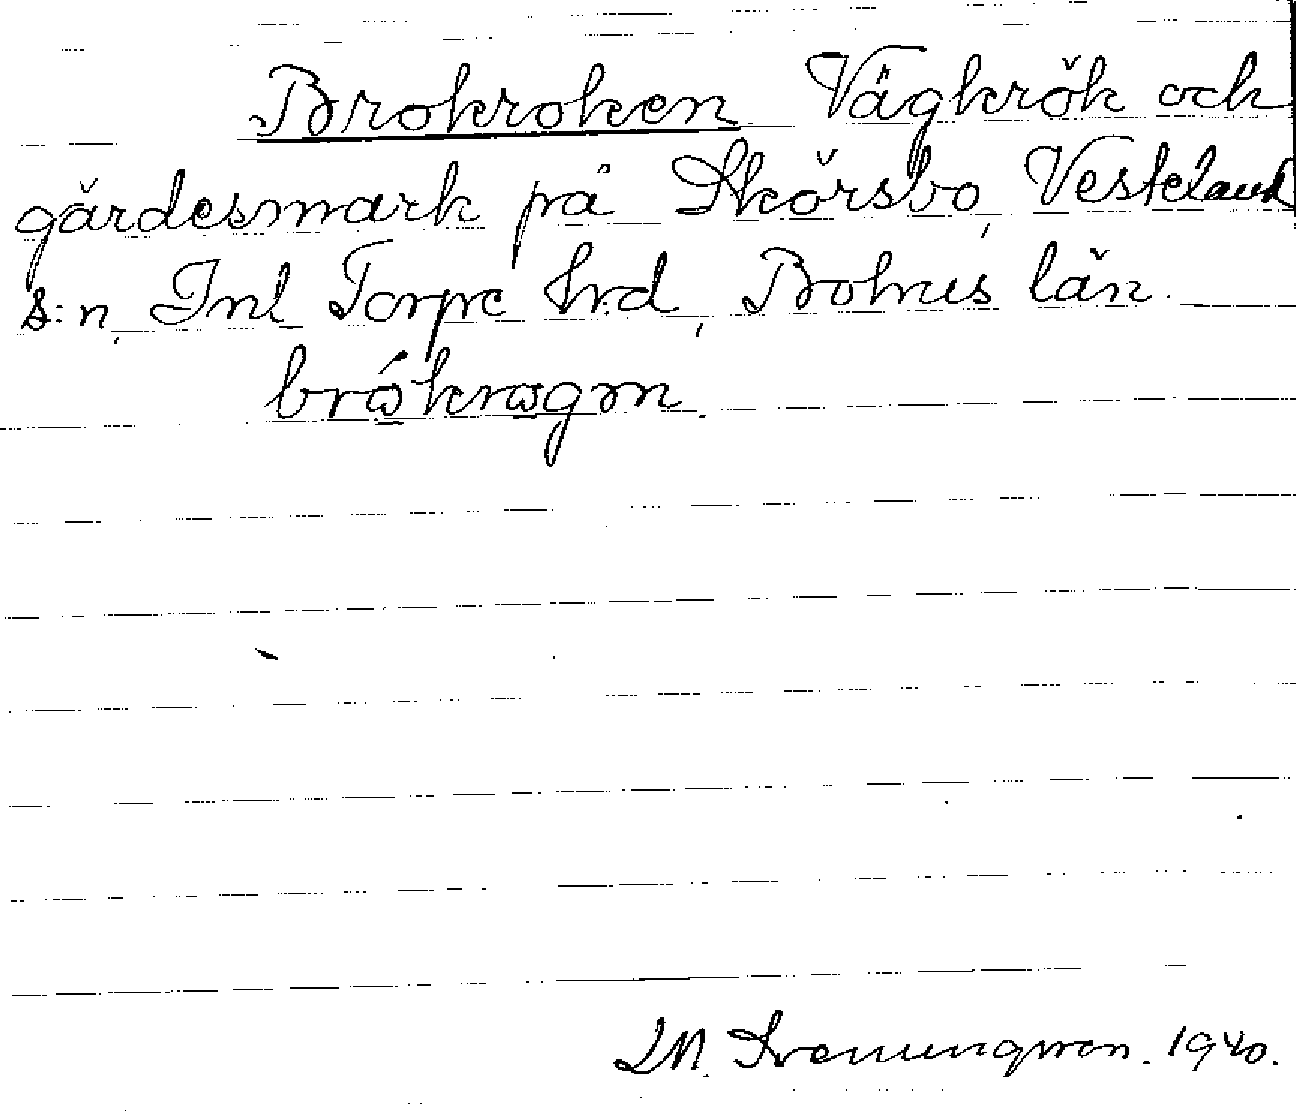 Brokroken Vägkrök och
gärdesmark på Skörsbo, Vesterland
s:n, Inl Torpe hrd, Bohus län.
brókrωgøn.
LM. Svenungson. 1940.